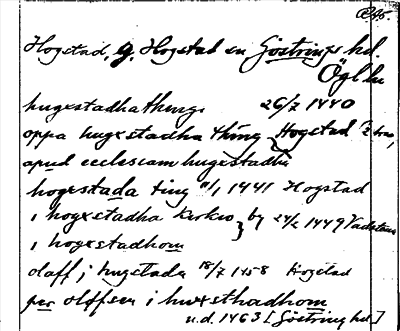 Hogstad, g. Hogstad sn Göstrings hd.
Ögl. län
hugxstadhathings 26/7 1440
oppa hugxstadha thing Hogstad
apud ecclesiam hugxstadha
hogxstada ting 11/1 1441 Hogstad
i hogxstadha kirkio by 24/2 1449 Vadstena
i hogxstadhom
olaff i hugstada 18/7 1458 Hogstad
per olofsen i huxsthadhom
u.d. 1463 [Göstring hd.]